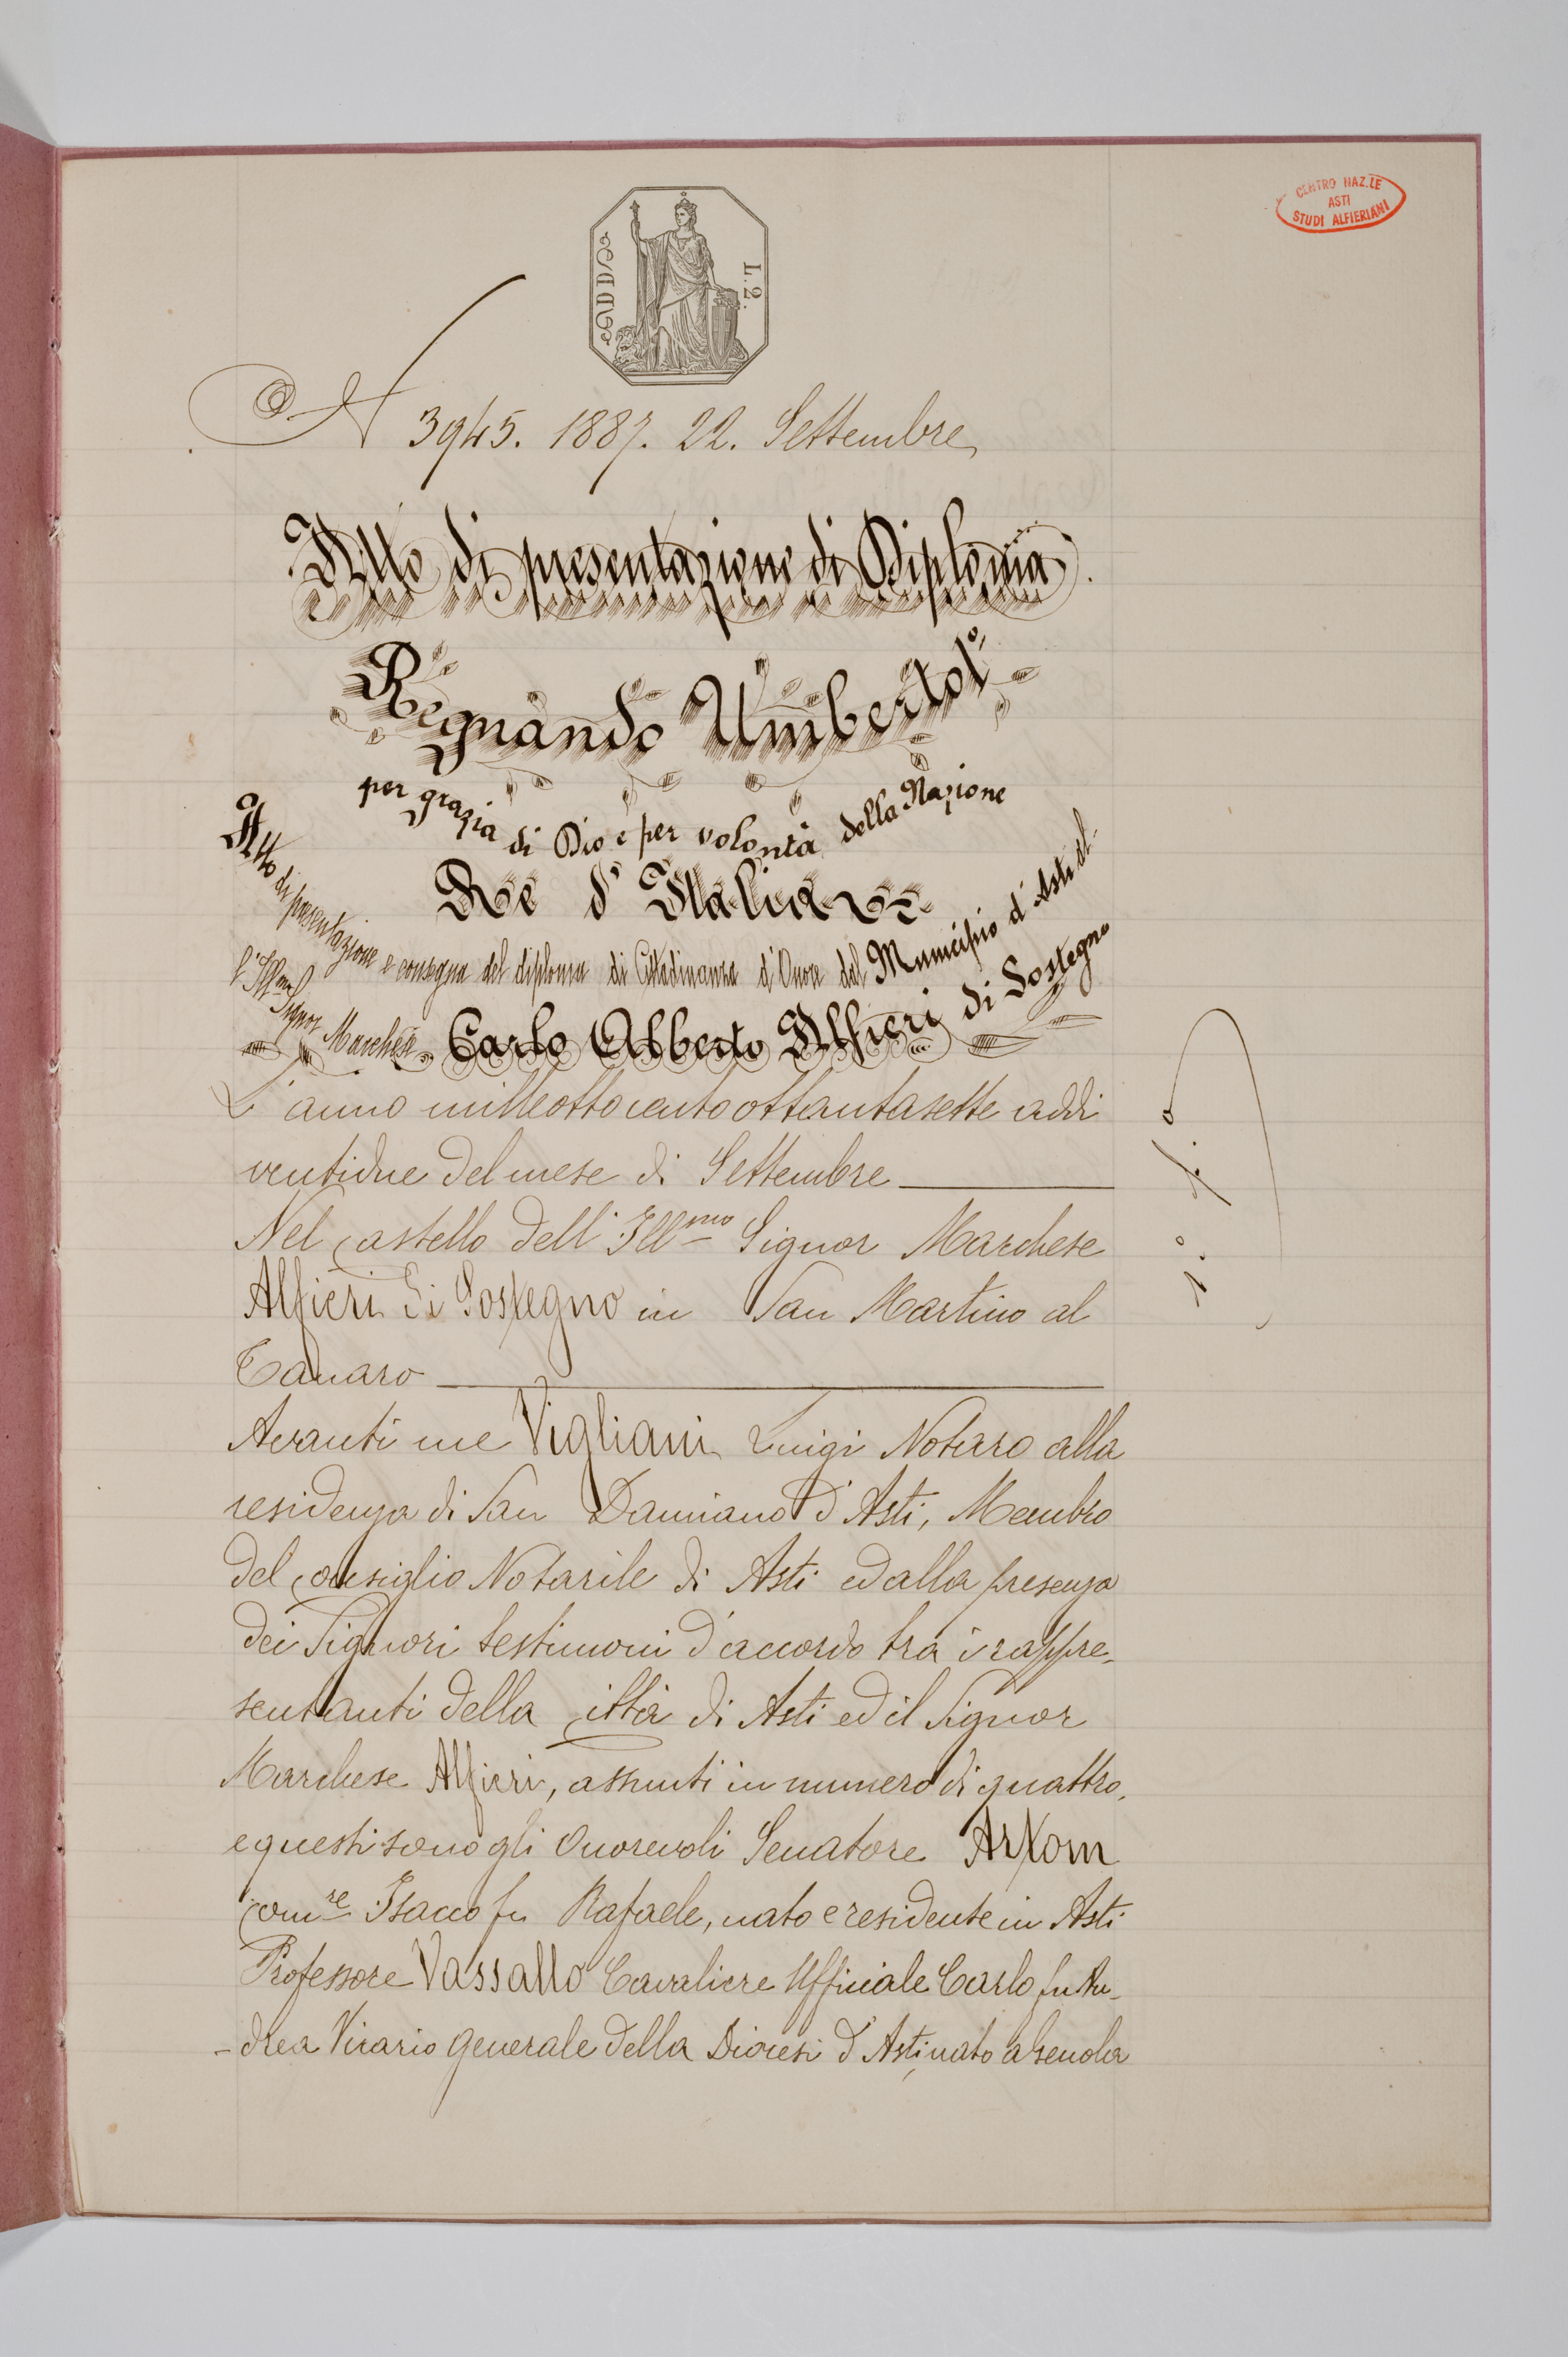 CENTRO NAZ.LE
ASTI
STUDI ALFIERIANI
L. 2.
N 3945. 1887. 22. Settembre
Atto di presentazione di Diploma.
Regnando Umberto I°
per grazia di Dio e per volontà della Nazione
Re d'Italia
Atto di presentazione e consegna del diploma di Cittadinanza d'Onore dal Municipio d'Asti al-
l'Ill.mo Signor Marchese Carlo Alberto Alfieri di Sostegno
L'anno milleottocentoottantasette addi
ventidue del mese di Settembre
Nel Castello dell'Ill.mo Signor Marchese
Alfieri di Sostegno in San Martino al
Tanaro
Avanti me Vigliani Luigi Notaro alla
residenza di San Damiano d'Asti, Membro
del Consiglio Notarile di Asti ed alla presenza
dei Signori testimoni d'accordo tra i rappre-
sentanti della Città di Asti ed il Signor
Marchese Alfieri, assunti in numero di quattro,
e questi sono gli Onorevoli Senatore Artom
Com.re Isacco fu Rafaele, nato e residente in Asti
Professore Vassallo Cavaliere Ufficiale Carlo fu An-
-drea Vicario Generale della Diocesi d'Asti, nato a